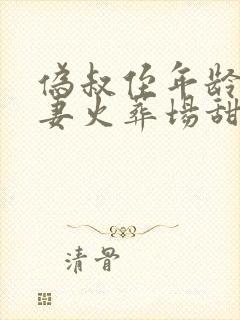 偽叔侄年龄
妻火葬場甜
清骨